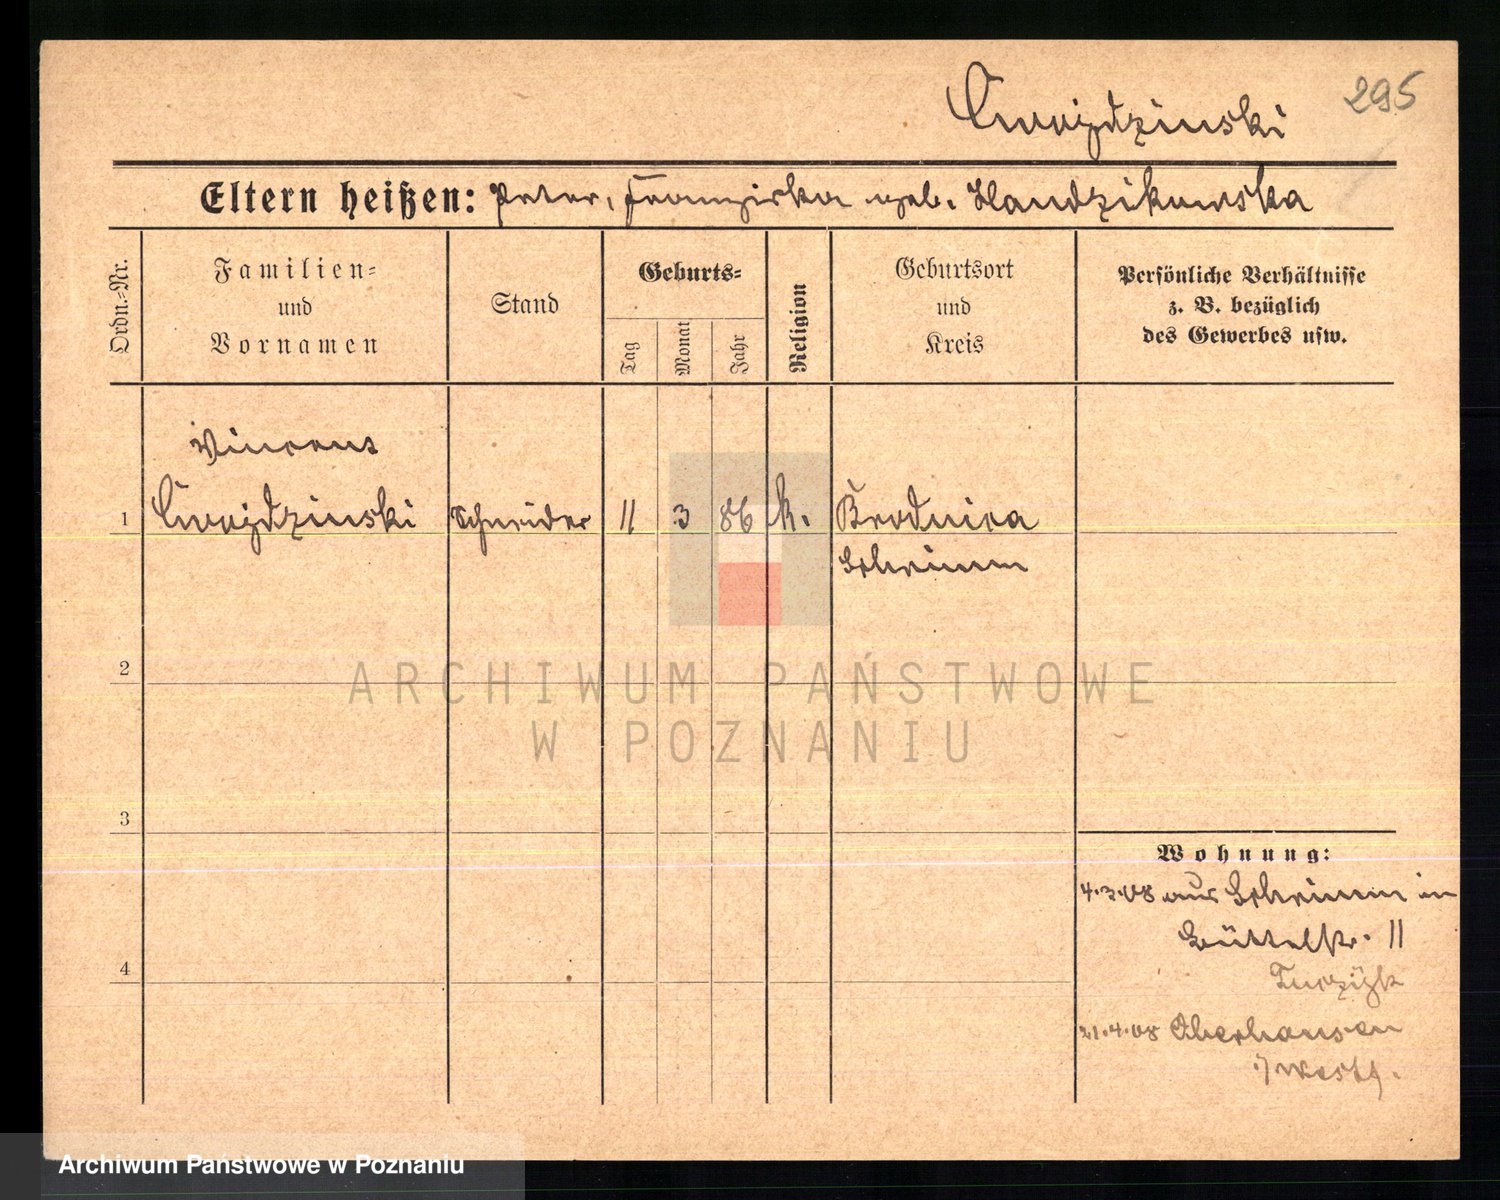 Cwojdzinski
295
Eltern heißen: Peter, Franziska geb. Handzikowska
Ordn.-Nr.
Familien-
und
Vornamen
Stand
Geburts-
Tag
Monat
Jahr
Religion
Geburtsort
und
Kreis
Persönliche Verhältnisse
z. B. bezüglich
des Gewerbes usw.
Vincent
1 Cwojdzinski Schneider 11 3 86 k. Brodnica
Schrimm
ARCHIWUM PAŃSTWOWE
W POZNANIU
2
3
4
Wohnung:
4.3.08 aus Schrimm in
Büttelstr. 11
21.4.08 Oberhausen
i/ Westf.
Archiwum Państwowe w Poznaniu